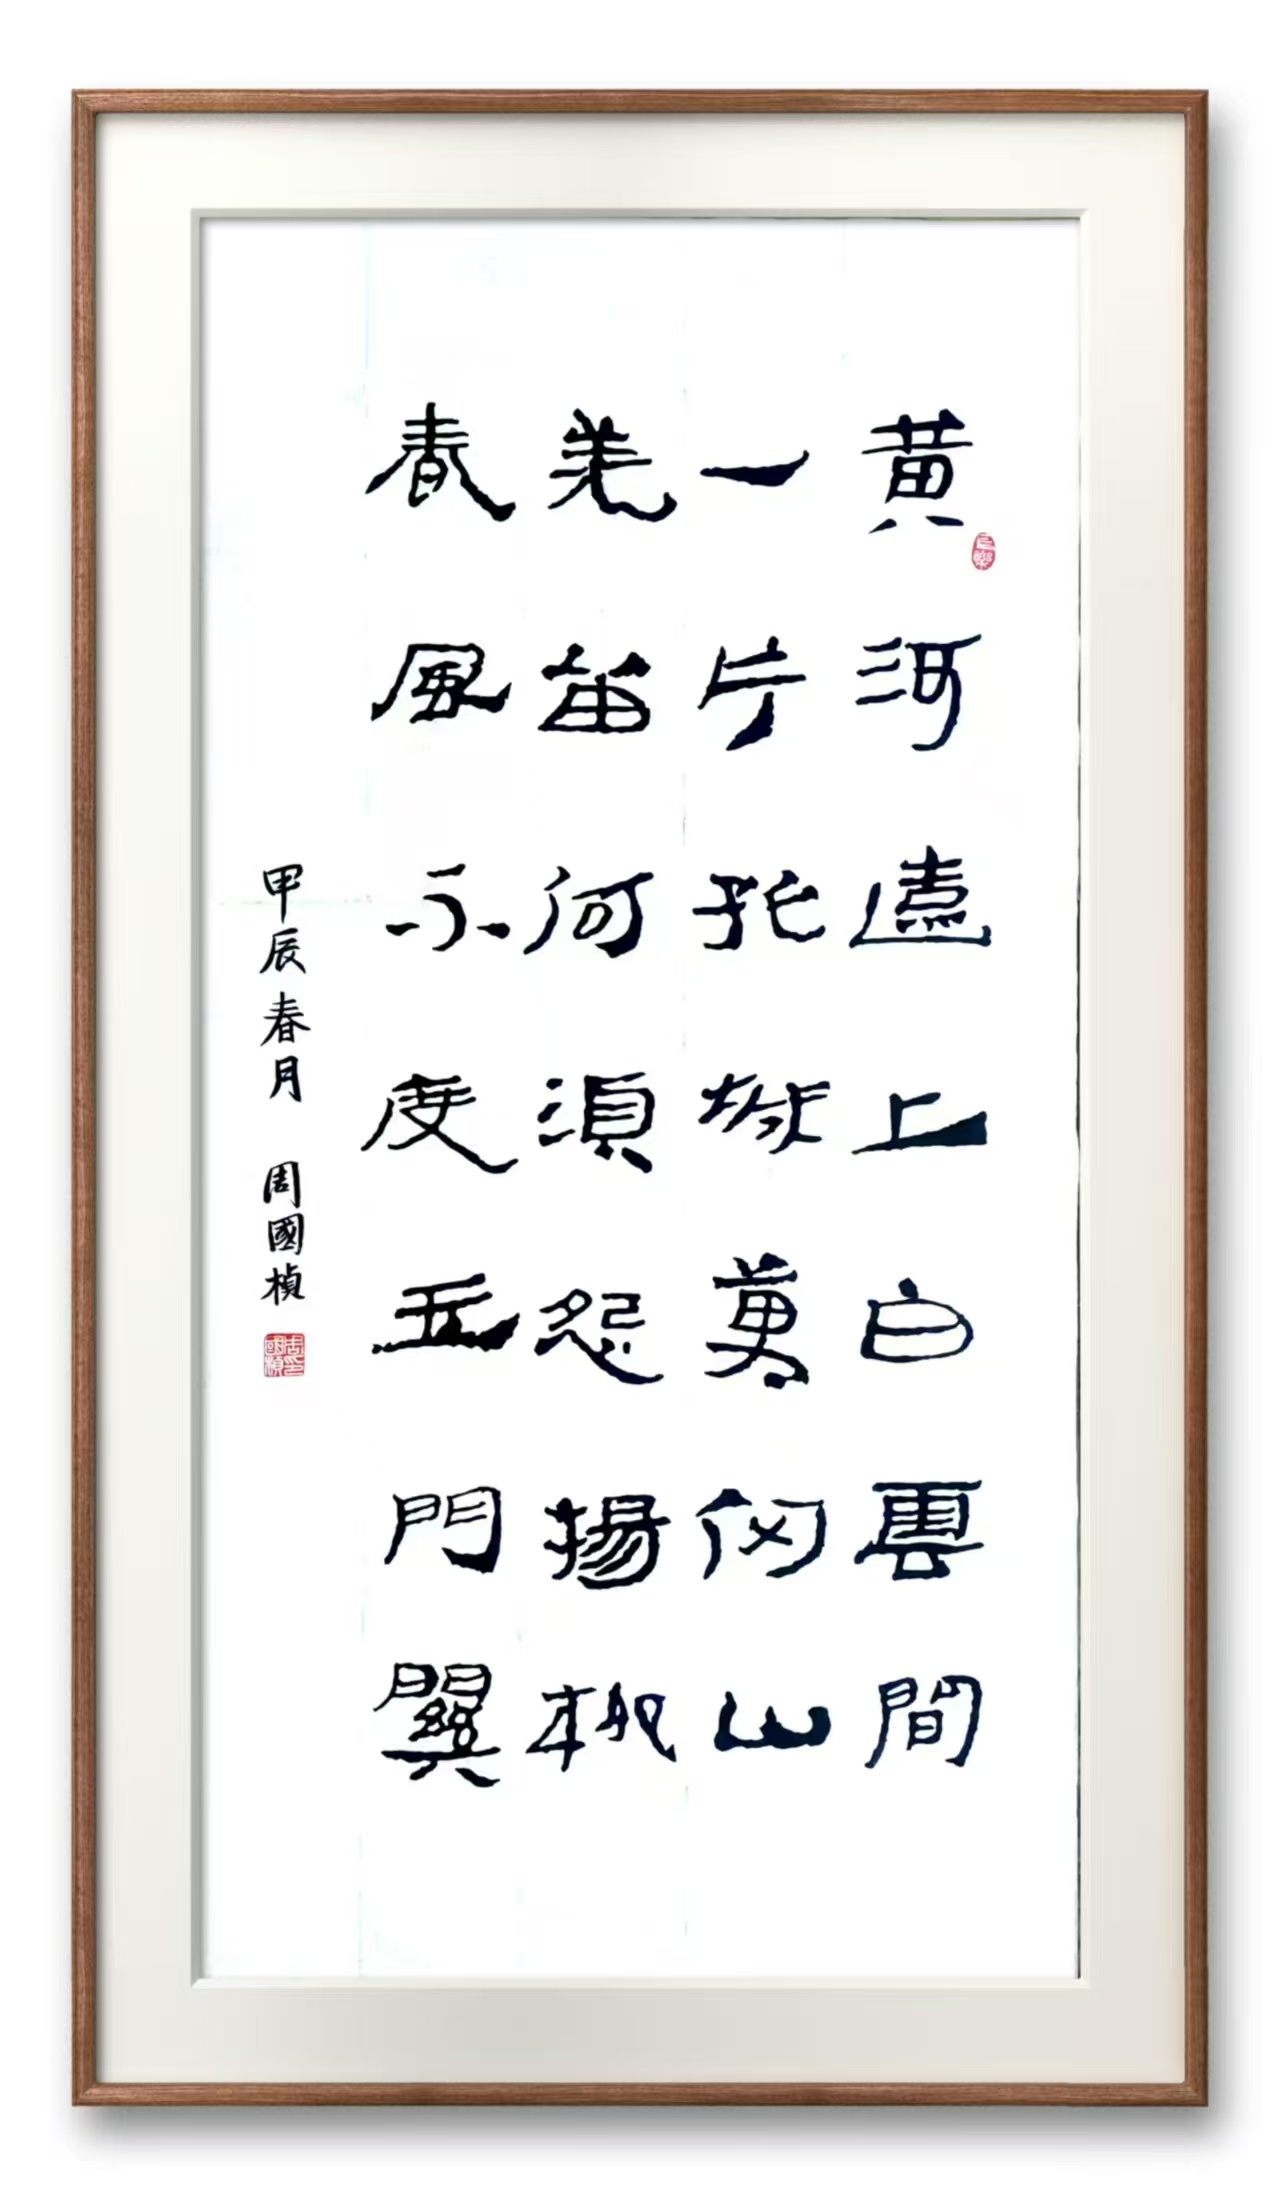 黃河遠上白雲間
一片孤城萬仞山
羌笛何湏怨揚柳
春風不度玉門關
甲辰春月 周國楨
周印國楨